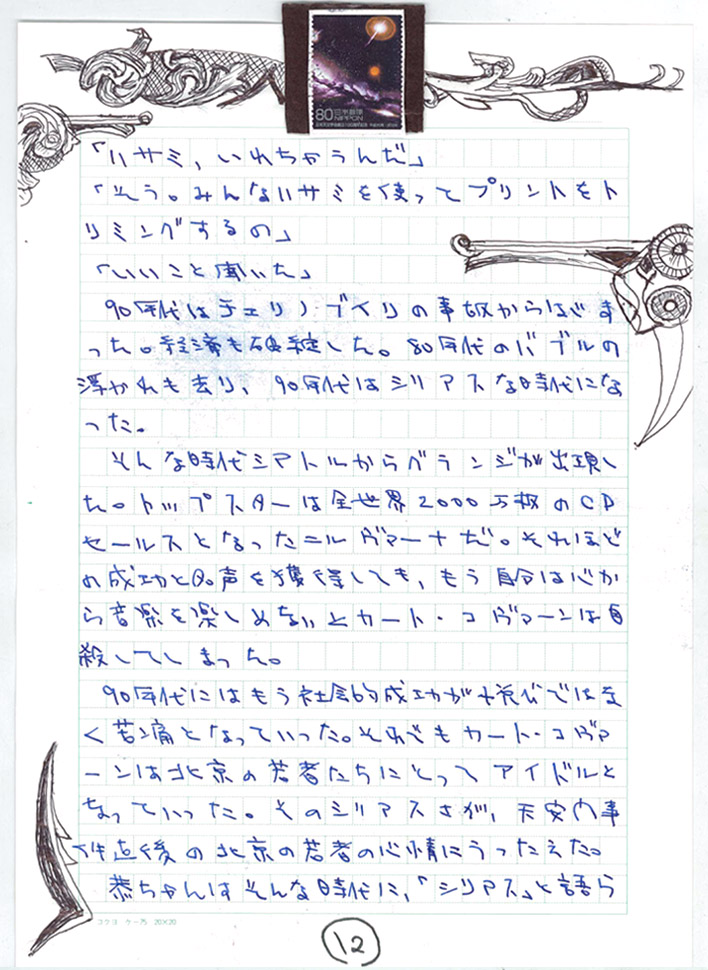 80 日本郵便
NIPPON
「ハサミ、いれちゃうんだ」
「そう。みんなハサミを使ってプリントをト
リミングするの」
「いいこと聞いた」
90年代はチェリノブイリの事故からはじま
った。経済も破綻した。80年代のバブルの
浮かれも去り、90年代はシリアスな時代にな
った。
そんな時代シアトルからグランジが出現し
た。トップスターは全世界2000万枚のCD
セールスとなったニルヴァーナだ。それほど
の成功と名声を獲得しても、もう自分は心か
ら音楽を楽しめないとカート・コヴァーンは自
殺してしまった。
90年代にはもう社会的成功が喜びではな
く苦痛となっていった。それでもカート・コヴァ
ーンは北京の若者たちにとってアイドルと
なっていった。そのシリアスさが、天安門事
件直後の北京の若者の心情にうったえた。
恭ちゃんはそんな時代に、「シリアス」と語ら
コクヨ ケー75 20×20
12